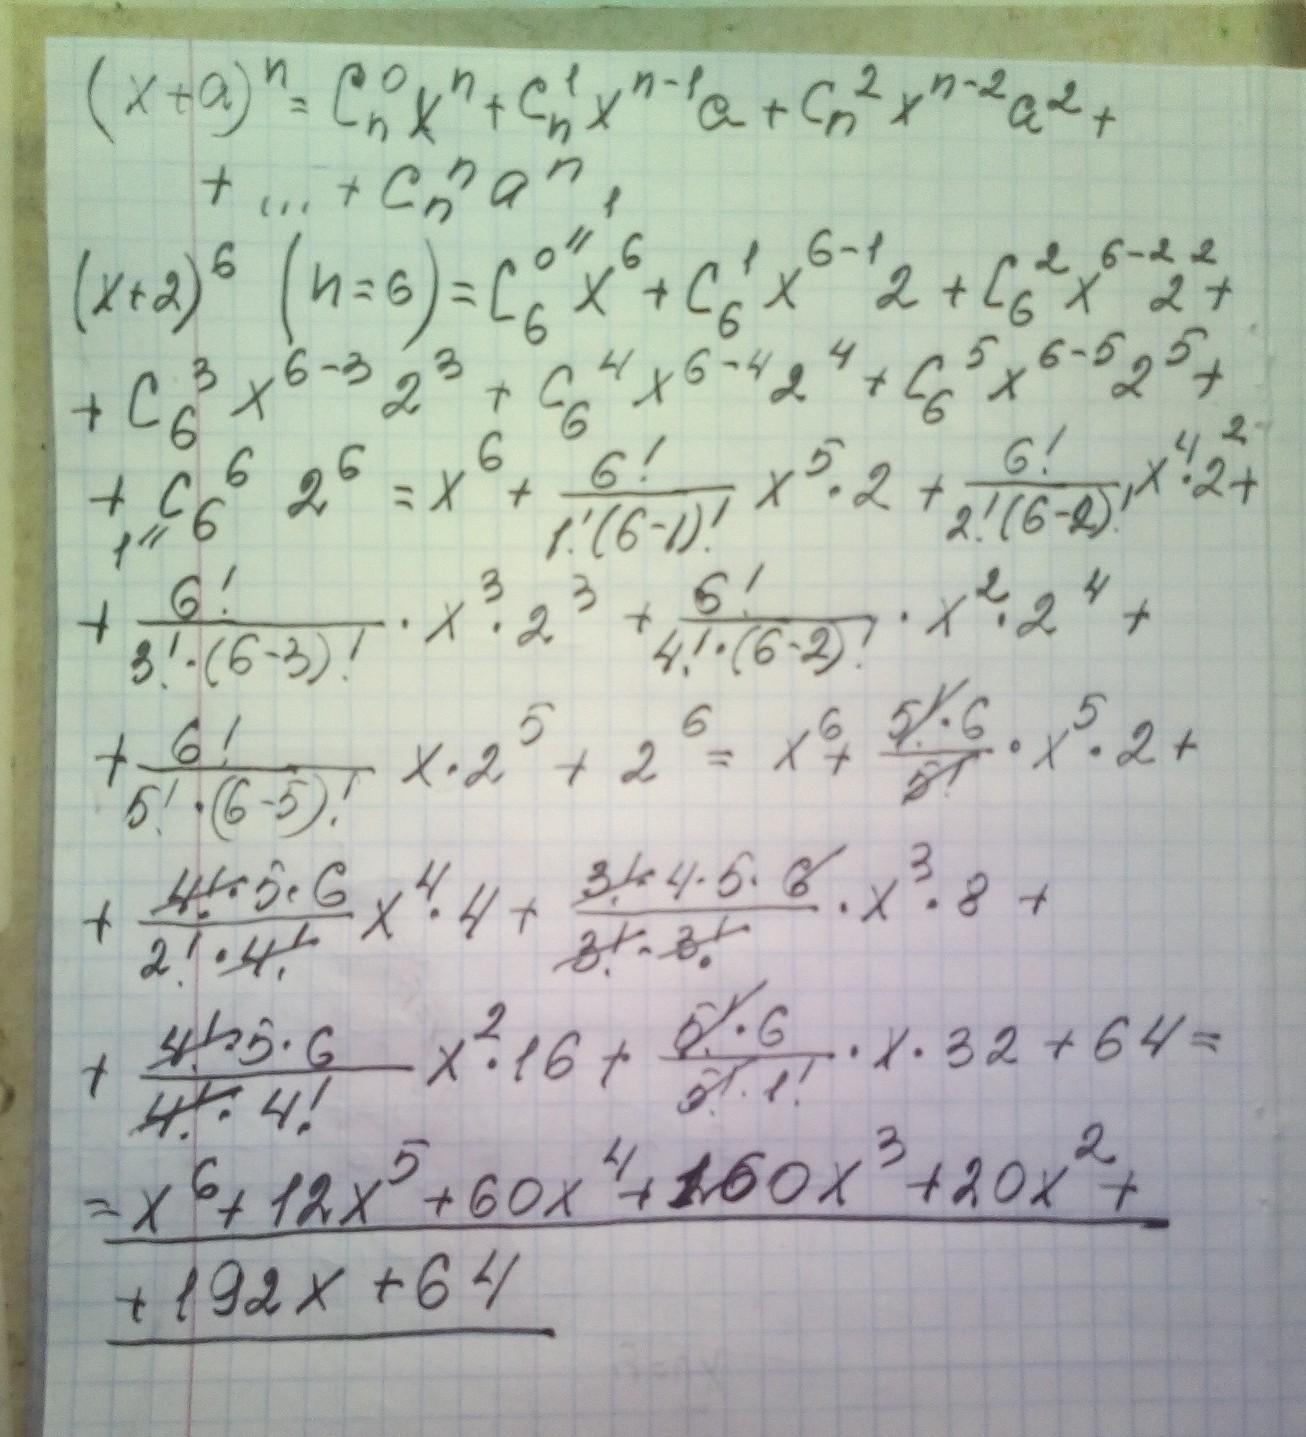 (x+a)ⁿ = Cₙ⁰xⁿ + Cₙ¹xⁿ⁻¹a + Cₙ²xⁿ⁻²a² +
+ ... + Cₙⁿaⁿ,
(x+2)⁶ (n=6) = C₆⁰ "1 x⁶ + C₆¹x⁶⁻¹2 + C₆²x⁶⁻²2² +
+ C₆³x⁶⁻³2³ + C₆⁴x⁶⁻⁴2⁴ + C₆⁵x⁶⁻⁵2⁵ +
+ C₆⁶ 1" 2⁶ = x⁶ + 6!/(1!(6-1)!) x⁵·2 + 6!/(2!(6-2)!) x⁴·2² +
+ 6!/(3!·(6-3)!) · x³·2³ + 6!/(4!·(6-2)!) · x²·2⁴ +
+ 6!/(5!·(6-5)!) x·2⁵ + 2⁶ = x⁶ + 5!·6/5! · x⁵·2 +
+ 4!·5·6/(2!·4!) x⁴·4 + 3!·4·5·6/(3!·3!) · x³·8 +
+ 4!·5·6/(4!·4!) x²·16 + 5!·6/(5!·1!) · x·32 + 64 =
= x⁶ + 12x⁵ + 60x⁴ + 160x³ + 20x² +
+ 192x + 64